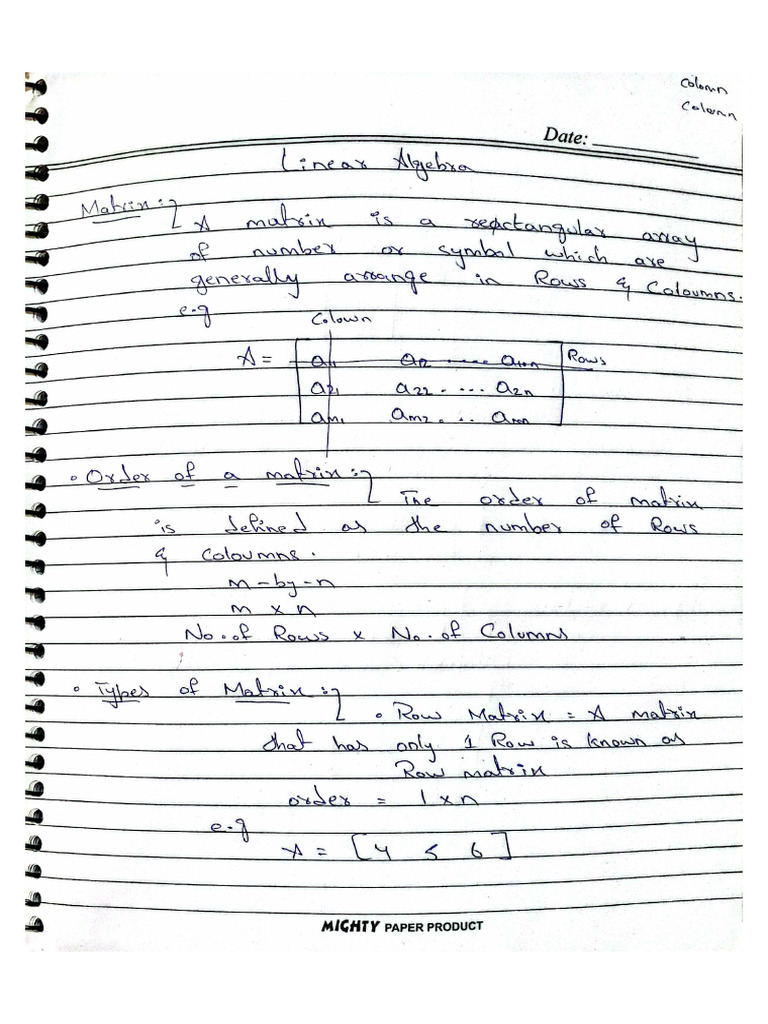 Colomn
Colomn
Date:
Linear Algebra
Matrix:-
A matrix is a rectangular array
of number or symbol which are
generally arrange in Rows & Coloumns.
e.g
Colown
A = a11 a12 ..... a1n Rows
a21 a22 . ... a2n
am1 am2 . .. amn
• Order of a matrix:-
The order of matrix
is defined as the number of Rows
& Coloumns.
m-by-n
m x n
No. of Rows x No. of Columns
• Types of Matrix:-
• Row Matrix = A matrix
that has only 1 Row is known as
Row matrix
order = 1 x n
e.g
A = [4 5 6]
MIGHTY PAPER PRODUCT